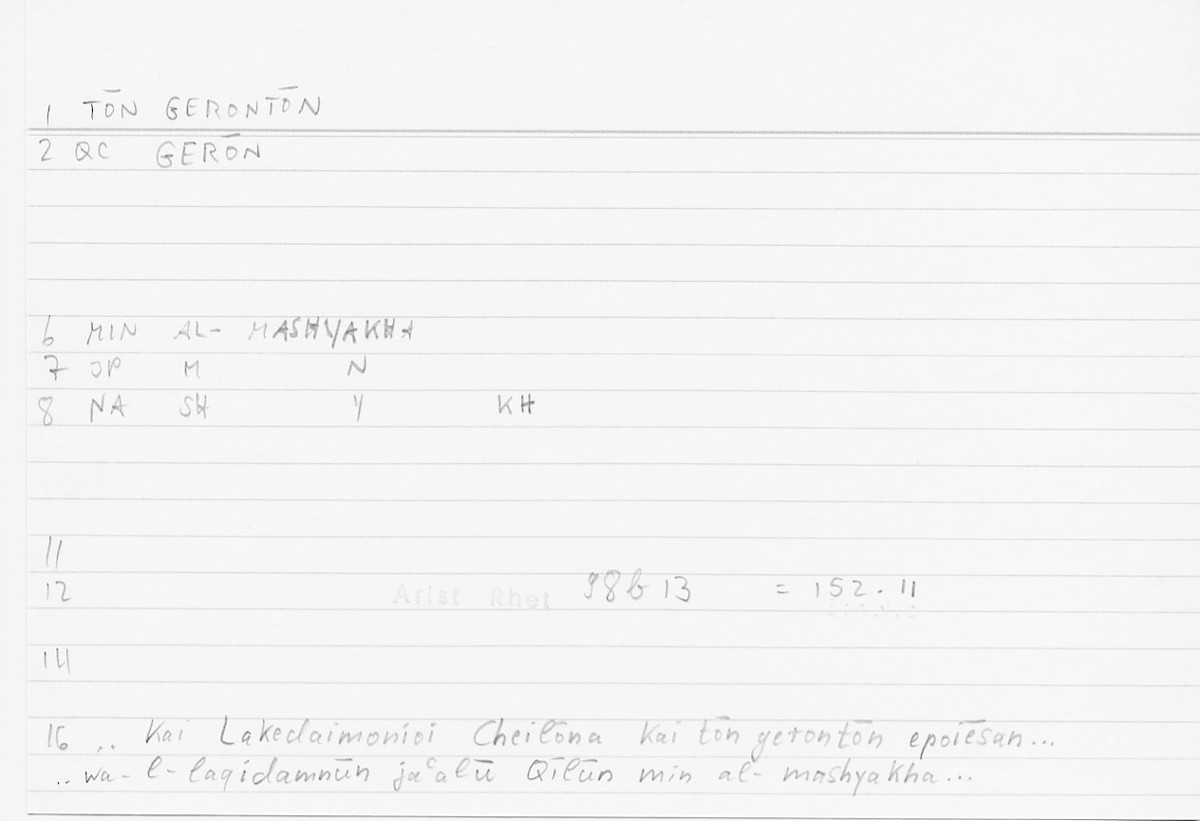 1 TŌN GERONTŌN
2 QC GERŌN
6 MIN AL- MASHYAKHA
7 JP M N
8 NA SH Y KH
11
12 Arist Rhet 98b13 = 152.11
14
16 .. Kai Lakedaimonioi Cheilōna kai tōn gerontōn epoiēsan...
.. wa-l-laqidamnūn jaʿalū Qīlūn min al-mashyakha...